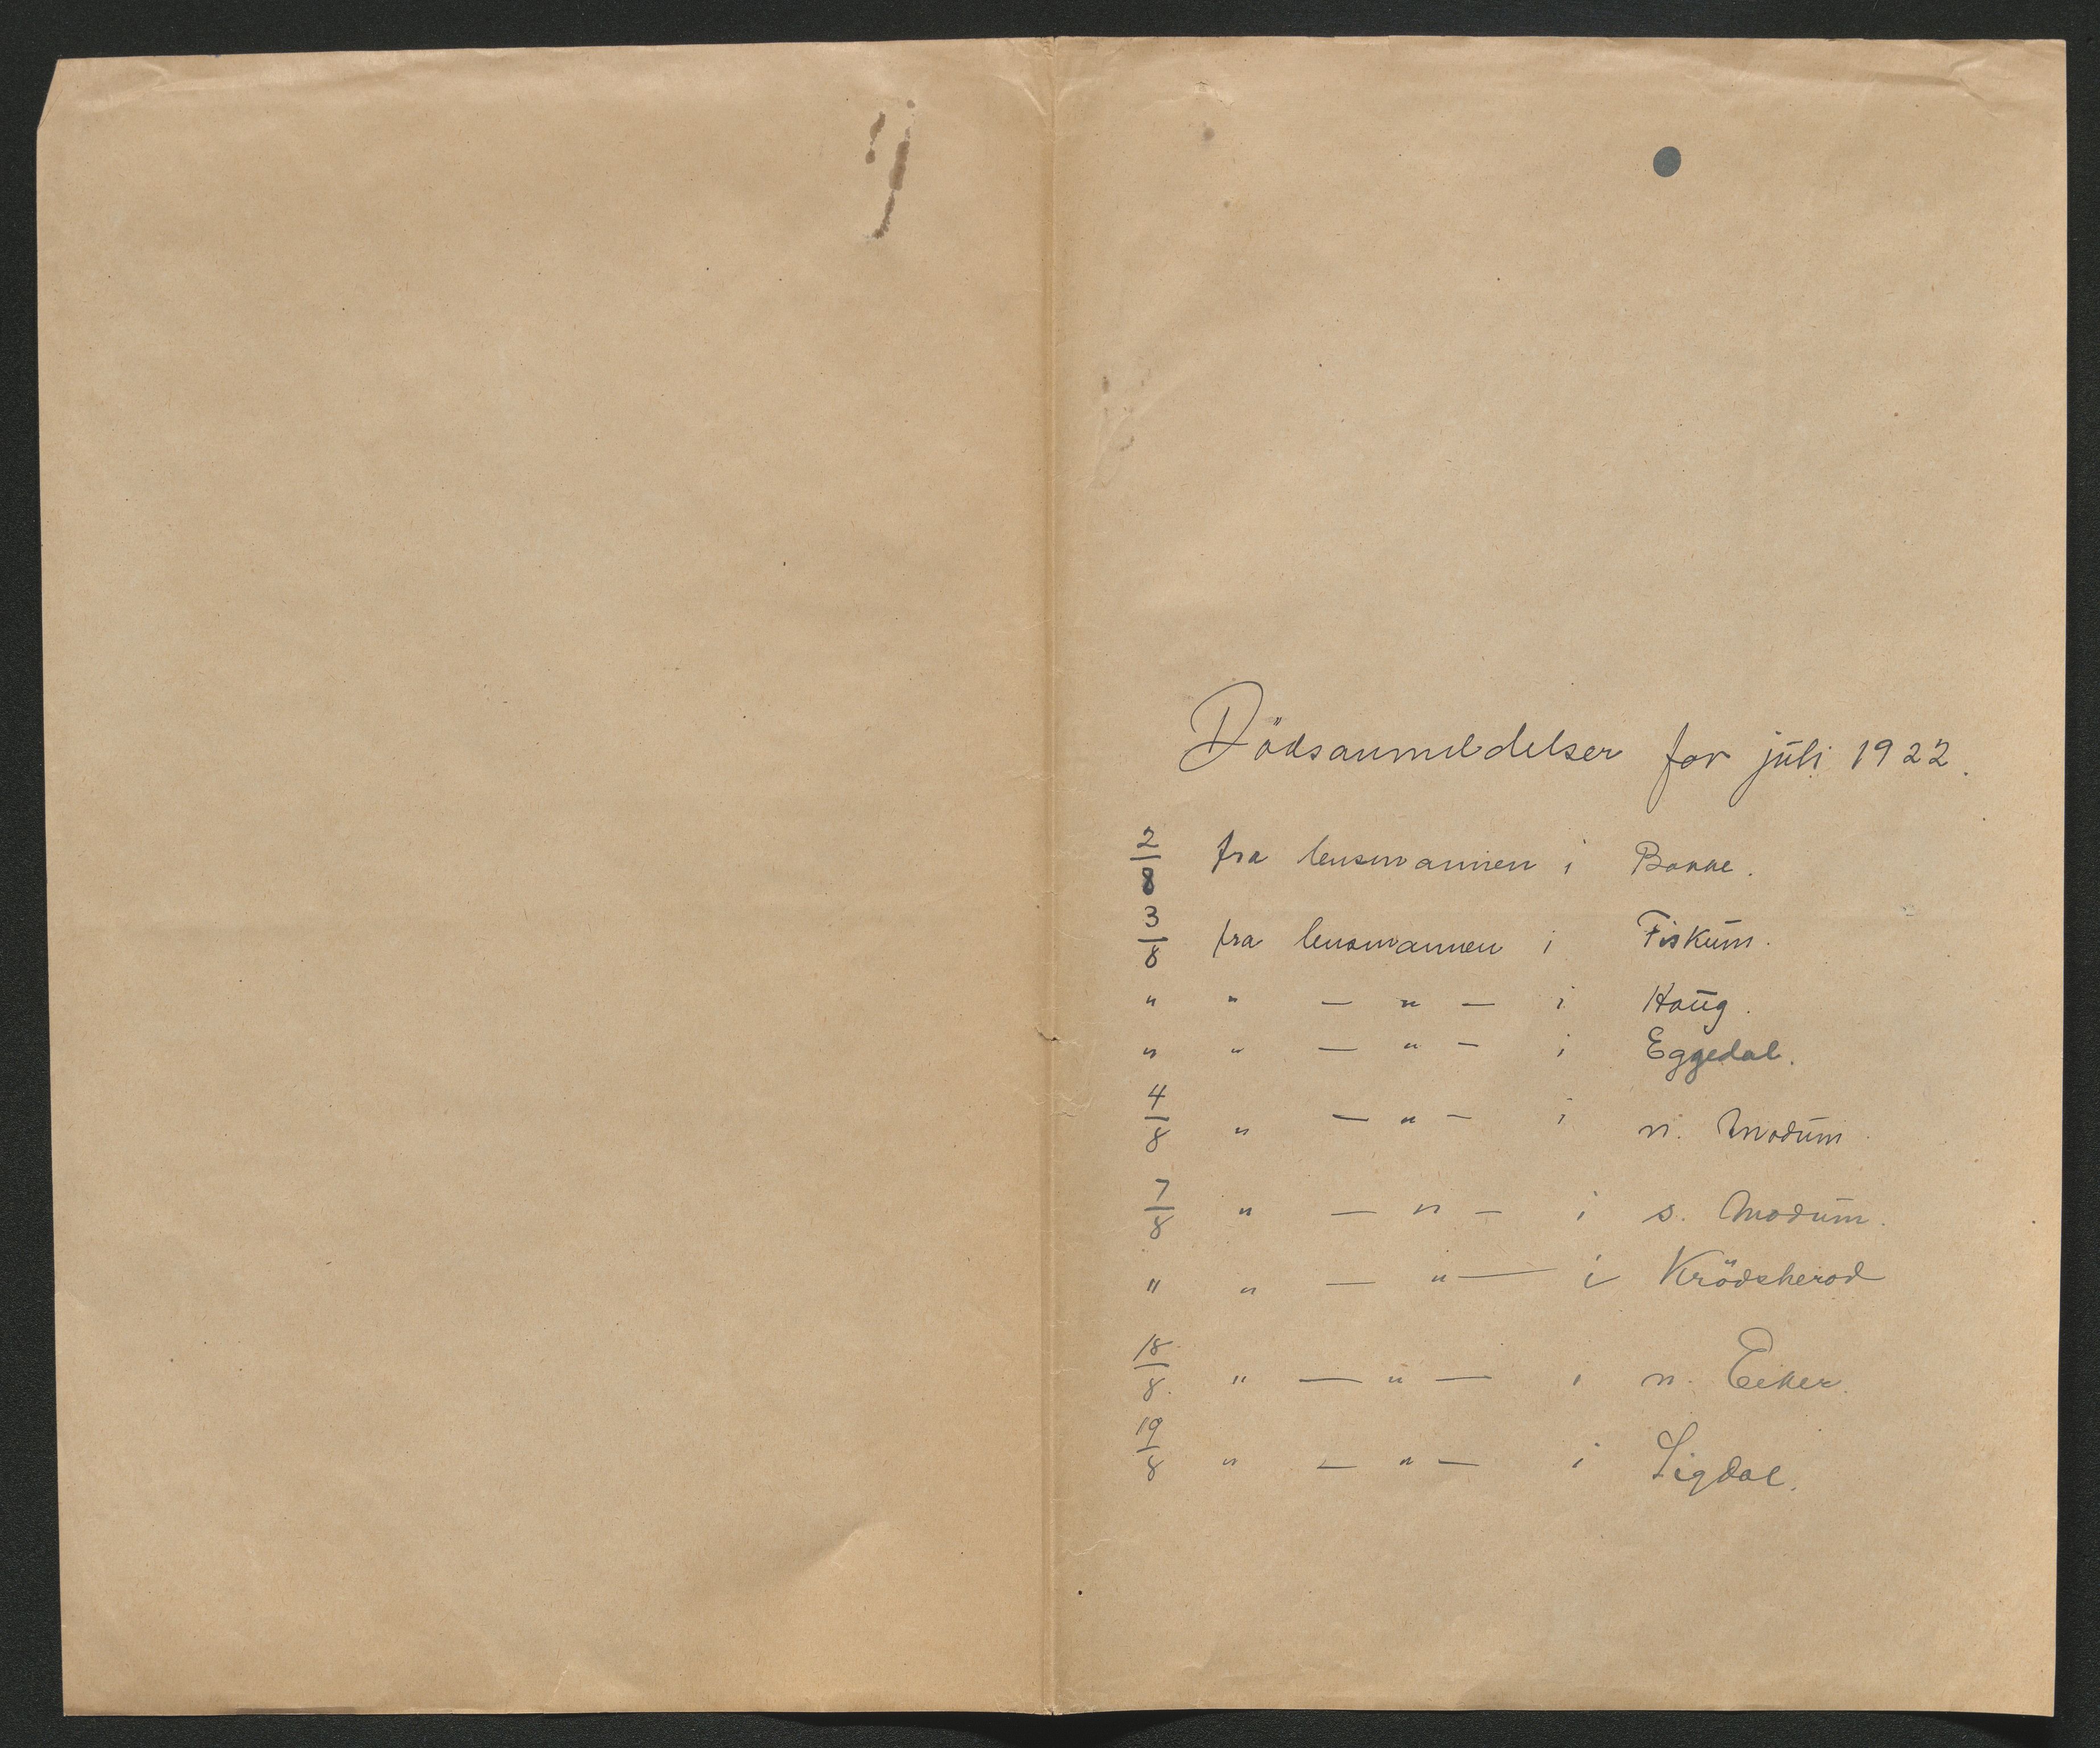 Dödsanmeldelser for juli 1922.
2/8 fra lensmannen i Bakke.
3/8 fra lensmannen i Fiskum.
" " — " — i Haug.
" " — " — i Eggedal.
4/8 " — " — i n. Modum
7/8 " — " — i s. Modum.
" " — " — i Krödsherod
18/8. " — " — i n. Eiker.
19/8 " — " — i Sigdal.